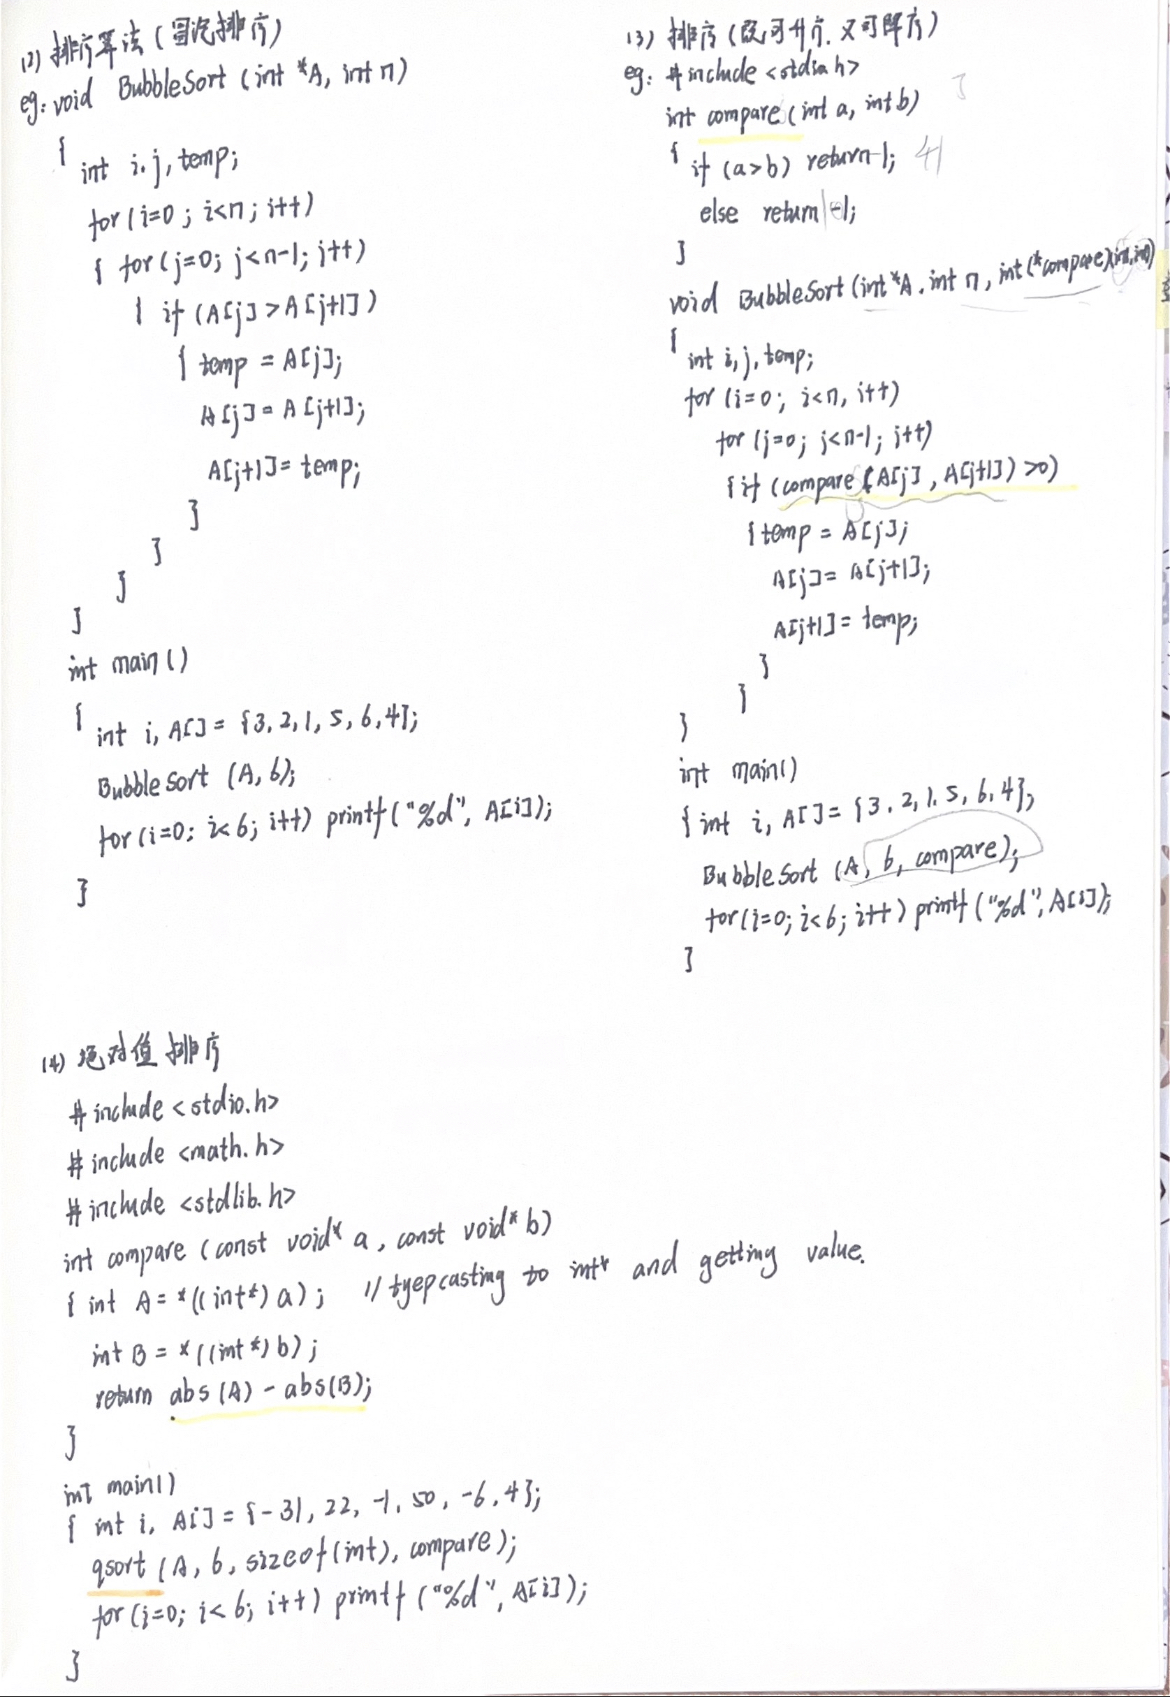 (2) 排序算法(冒泡排序)
eg: void BubbleSort (int *A, int n)
{
int i, j, temp;
for (i=0; i<n; i++)
{ for (j=0; j<n-1; j++)
{ if (A[j] > A[j+1])
{ temp = A[j];
A[j] = A[j+1];
A[j+1] = temp;
}
}
}
}
int main ()
{
int i, A[] = {3, 2, 1, 5, 6, 4};
BubbleSort (A, 6);
for (i=0; i<6; i++) printf ("%d", A[i]);
}
(3) 排序(既可升序, 又可降序)
eg: #include <stdio.h>
int compare (int a, int b)
{ if (a>b) return -1;
else return 1;
}
void BubbleSort (int *A, int n, int (*compare)(int, int)
{
int i, j, temp;
for (i=0; i<n, i++)
for (j=0; j<n-1; j++)
{ if (compare (A[j], A[j+1]) >0)
{ temp = A[j];
A[j] = A[j+1];
A[j+1] = temp;
}
}
}
int main()
{ int i, A[] = {3, 2, 1, 5, 6, 4};
BubbleSort (A, 6, compare);
for (i=0; i<6; i++) printf ("%d", A[i]);
}
(4) 绝对值排序
#include <stdio.h>
#include <math.h>
#include <stdlib.h>
int compare (const void* a, const void* b)
{ int A = *((int*) a); // tyepcasting to int* and getting value.
int B = *((int*) b);
return abs (A) - abs(B);
}
int main()
{ int i, A[] = {-31, 22, -1, 50, -6, 4};
qsort (A, 6, sizeof(int), compare);
for (i=0; i<6; i++) printf ("%d", A[i]);
}